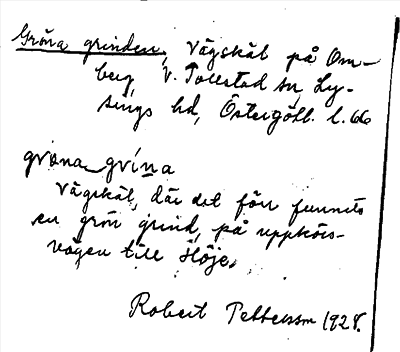 Gröna grinden, Vägskäl på Om-
berg, V. Tollstad sn, Ly-
sings hd, Östergötl. l.
grøna grina
Vägskäl, där det förr funnits
en grön grind, på uppkörs-
vägen till Höje.
Robert Pettersson 1928.